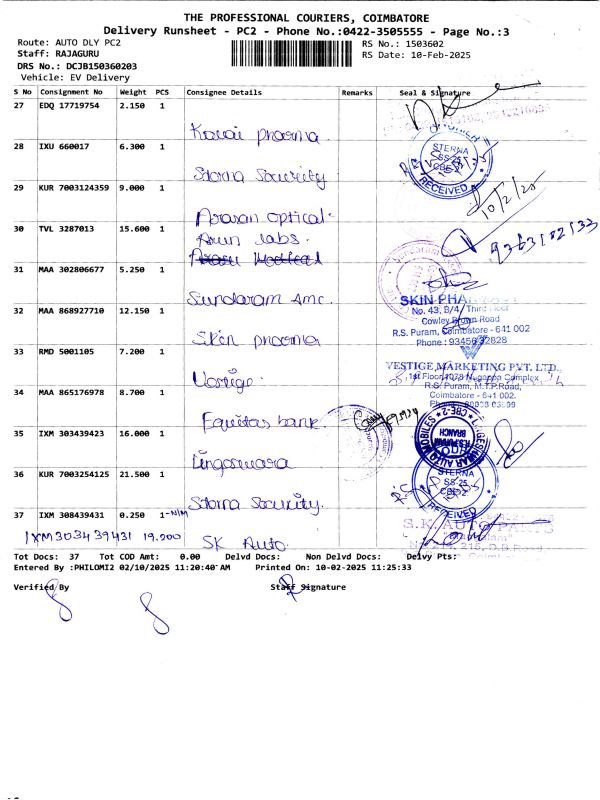 THE PROFESSIONAL COURIERS, COIMBATORE
Delivery Runsheet - PC2 - Phone No.:0422-3505555 - Page No.:3
Route: AUTO DLY PC2
RS No.: 1503602
Staff: RAJAGURU
RS Date: 10-Feb-2025
DRS No.: DCJB150360203
Vehicle: EV Delivery
S No Consignment No Weight PCS Consignee Details Remarks Seal & Signature
27 EDQ 17719754 2.150 1
Kovai pharma
28 IXU 660017 6.300 1
STERNA
SS-25
CBE-2
RECEIVED
Sterna Security
29 KUR 7003124359 9.000 1
10/2/25
Aravan optical
30 TVL 3287013 15.600 1
Arun labs.
31 MAA 302806677 5.250 1
Sundaram Amc.
32 MAA 868927710 12.150 1
SKIN PHA
No. 43, B/4, Third Floor
Cowley Brown Road
R.S. Puram, Coimbatore - 641 002
Phone : 93456 32828
Skin pharma
33 RMD 5001105 7.200 1
VESTIGE MARKETING PVT. LTD.,
1st Floor
R.S. Puram, M.T.P.Road,
Coimbatore - 641 002.
Vestige.
34 MAA 865176978 8.700 1
Equitas bank.
35 IXM 303439423 16.000 1
Lingeswara
36 KUR 7003254125 21.500 1
STERNA
SS-25
CBE-2
RECEIVED
Sterna Security.
37 IXM 308439431 0.250 1-N/M
S.K. AUTO PARTS
IXM303439431 19.000
SK Auto.
Tot Docs: 37 Tot COD Amt: 0.00 Delvd Docs: Non Delvd Docs: Delvy Pts:
Entered By :PHILOMI2 02/10/2025 11:20:40 AM Printed On: 10-02-2025 11:25:33
Verified By Staff Signature